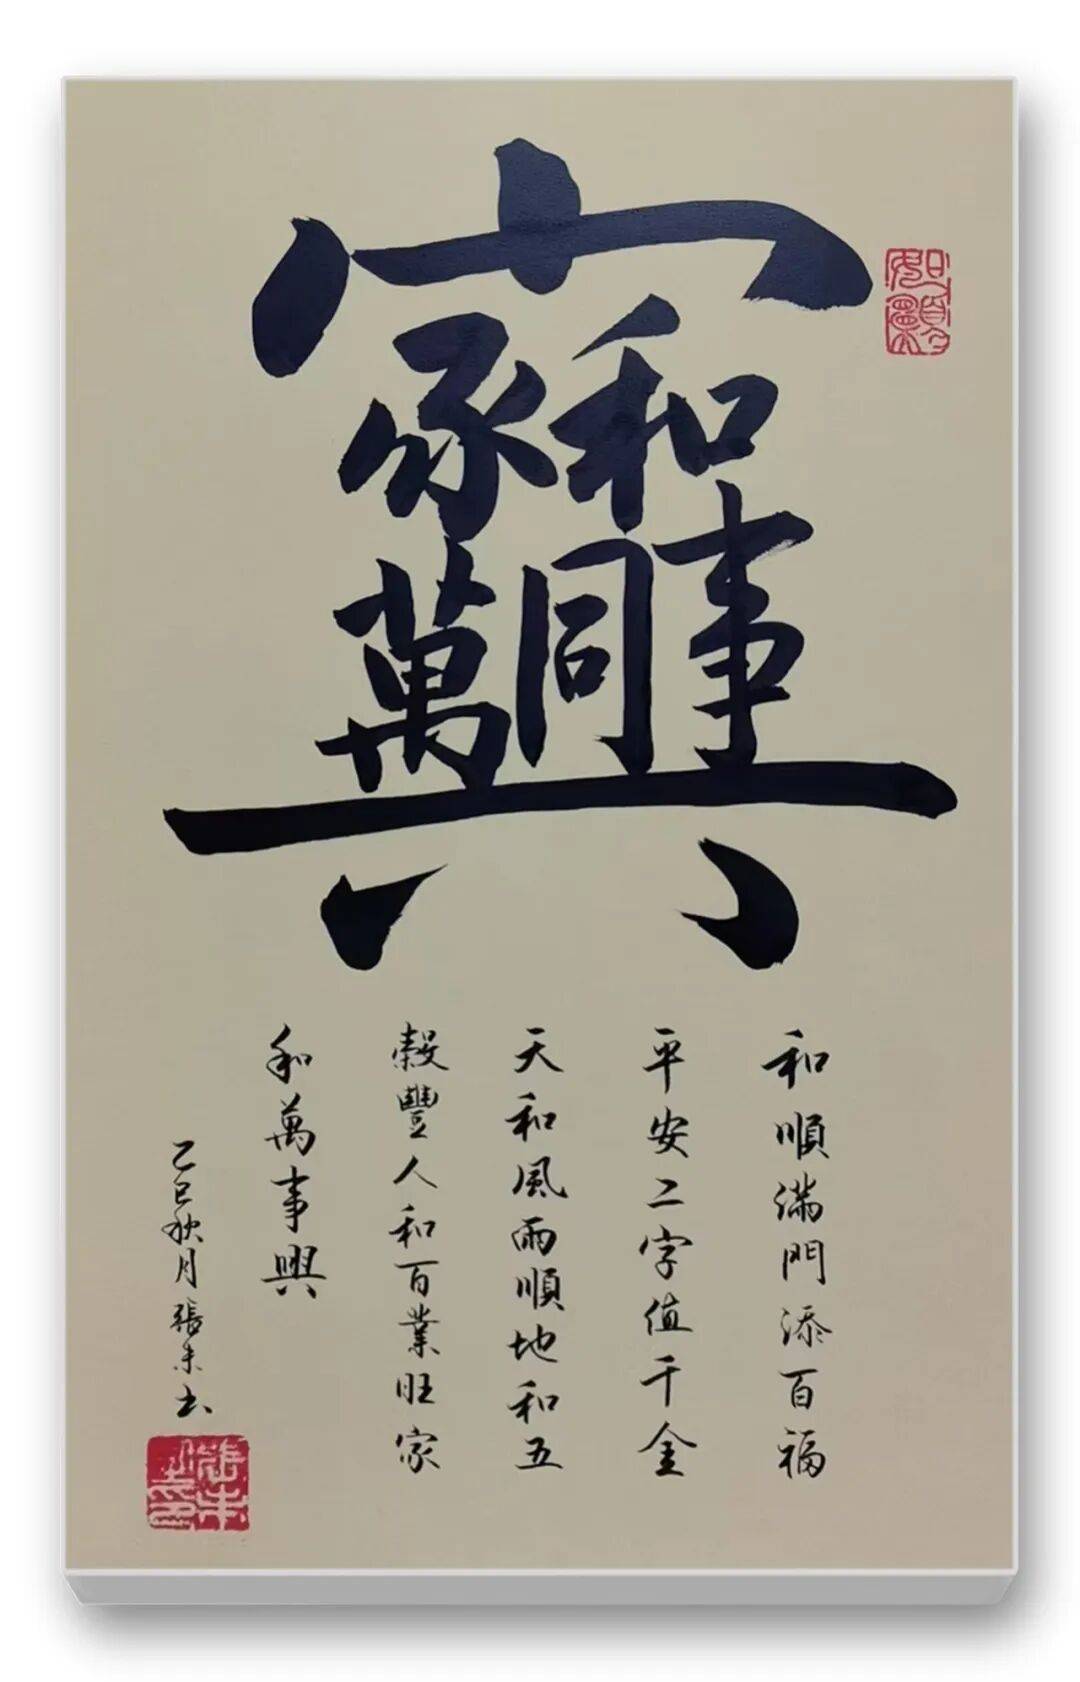 家和萬事興
和順滿門添百福
平安二字值千金
天和風雨順地和五
穀豐人和百業旺家
和萬事興
乙巳秋月張書